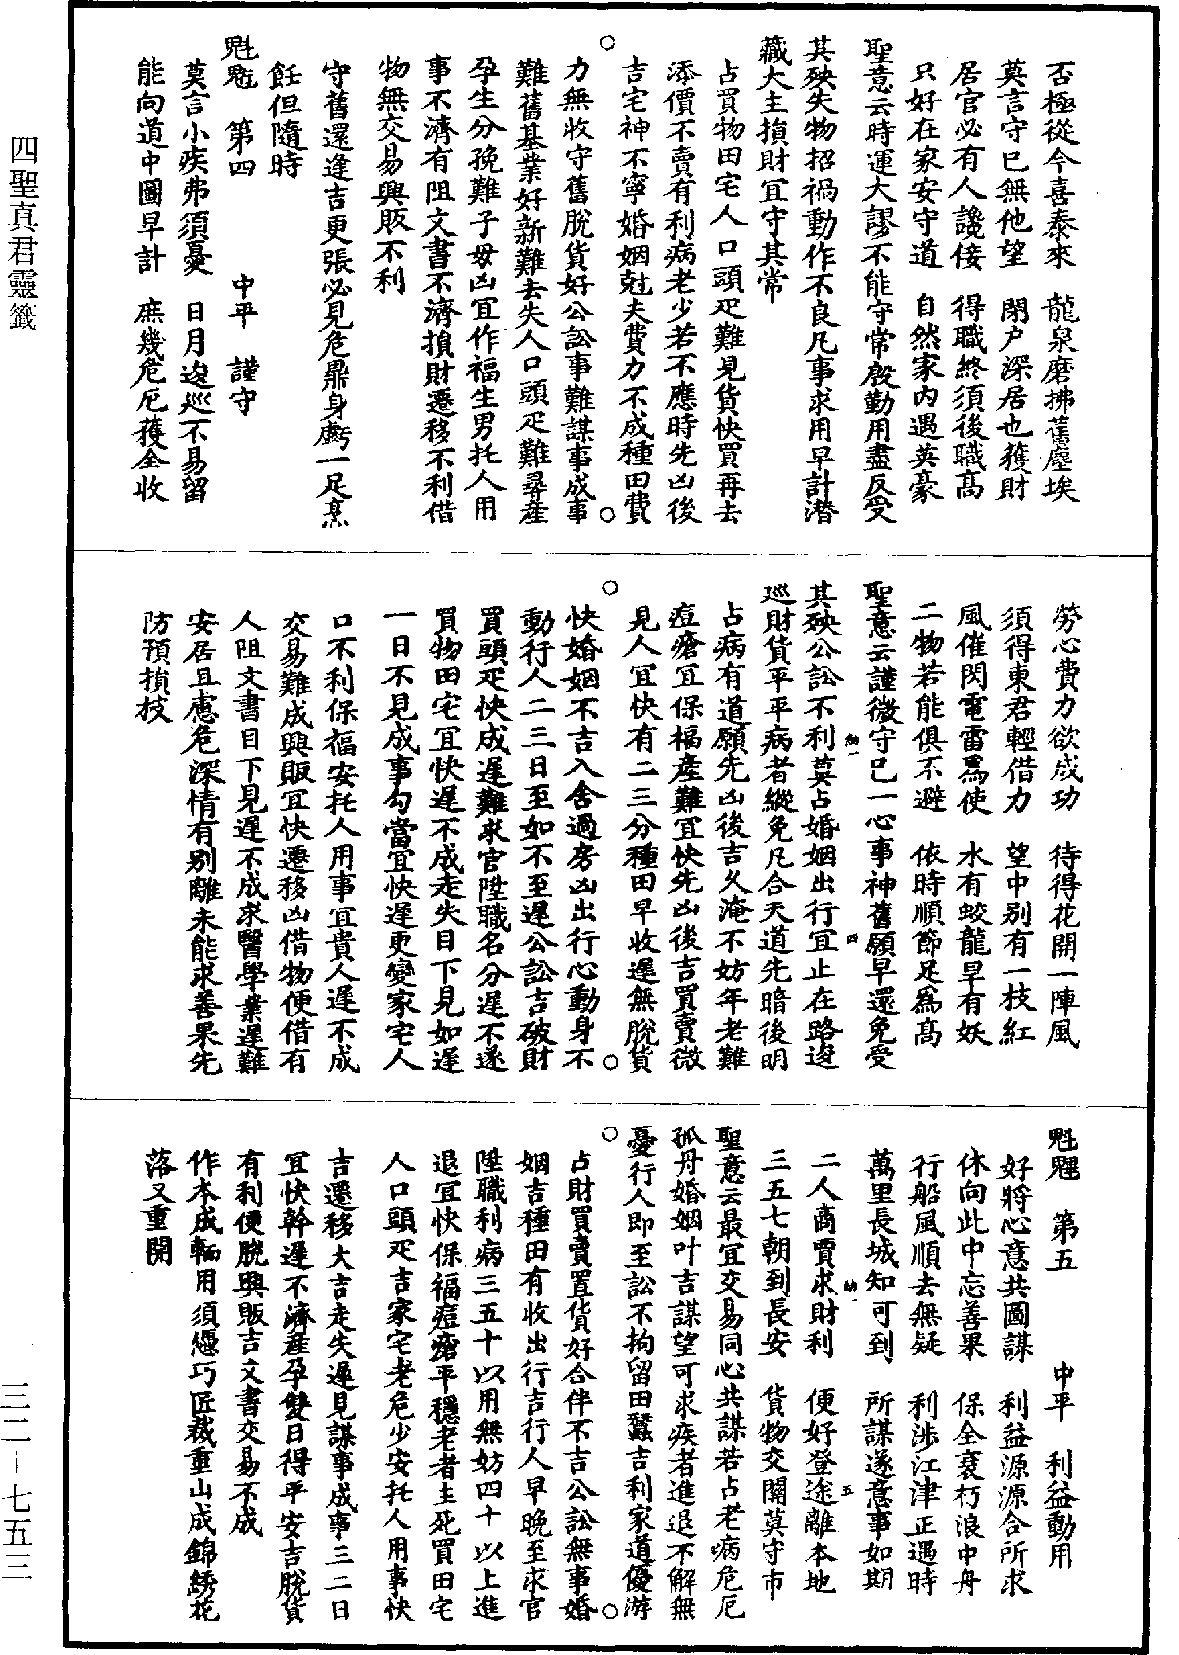 四聖真君靈籤
否極從今喜泰來　龍泉磨拂舊塵埃
莫言守已無他望　閉户深居也獲財
居官必有人讒佞　得職終須後職高
只好在家安守道　自然家内遇英豪
聖意云時運大謬不能守常殷勤用盡反受
其殃失物招禍動作不良凡事求用早計潜
藏大主損財宜守其常
占買物田宅人口頭疋難見貨快買再去
添價不賣有利病老少若不應時先凶後
吉宅神不寧婚姻尅夫費力不成種田費
力無收守舊脫貨好公訟事難謀事成事
難舊基業好新難去失人口頭疋難尋產
孕生分挽難子母凶宜作福生男托人用
事不濟有阻文書不濟損財遷移不利借
物無交易興販不利
守舊還逢吉更張必見危鼎身虧一足烹
飪但隨時
第四　中平　謹守
莫言小疾弗須憂　日月逡巡不易留
能向道中圖早計　庶幾危厄獲全收
勞心費力欲成功　待得花開一陣風
須得東君輕借力　望中別有一枝紅
風催閃電雷爲使　水有蛟龍旱有妖
二物若能俱不避　依時順節足爲高
聖意云謹微守已一心事神舊願早還免受
其殃公訟不利莫占婚姻出行宜止在路逡
巡財貨平平病者縱免凡合天道先暗後明
占病有道願先凶後吉久淹不妨年老難
痘瘡宜保福產難宜快先凶後吉買賣微
見人宜快有二三分種田早收遲無脫貨
快婚姻不吉入舍過房凶出行心動身不
動行人二三日至如不至遲公訟吉破財
買頭疋快成遲難求官陞職名分遲不遂
買物田宅宜快遲不成走失目下見如遲
一日不見成事勾當宜快遲更變家宅人
口不利保福安托人用事宜貴人遲不成
交易難成興販宜快遷移凶借物便借有
人阻文書目下見遲不成求醫學業遲難
安居且慮危深情有別離未能求善果先
防預損枝
第五　中平　利益動用
好將心意共圖謀　利益源源合所求
休向此中忘善果　保全衰朽浪中舟
行船風順去無疑　利涉江津正遇時
萬里長城知可到　所謀遂意事如期
二人商賈求財利　便好登途離本地
三五七朝到長安　貨物交關莫守市
聖意云最宜交易同心共謀若占老病危厄
孤舟婚姻叶吉謀望可求疾者進退不解無
憂行人即至訟不拘留田蠶吉利家道優游
占財買賣置貨好合伴不吉公訟無事婚
姻吉種田有收出行吉行人早晚至求官
陞職利病三五十以用無妨四十以上進
退宜快保福痘瘡平穩老者主死買田宅
人口頭疋吉家宅老危少安托人用事快
吉遷移大吉走失遲見謀事成事三二日
宜快幹遲不濟產孕雙日得平安吉脫貨
有利便脫興販吉文書交易不成
作本成輛用須憑巧匠裁重山成錦綉花
落又重開
三二－七五三